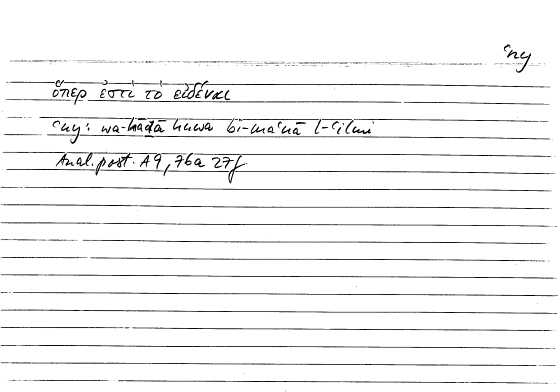 ʿny
ὅπερ ἐστὶ τὸ εἰδέναι
ʿny: wa-hāḏā huwa bi-maʿnā l-ʿilmi
Anal. post. A 9, 76a 27f.